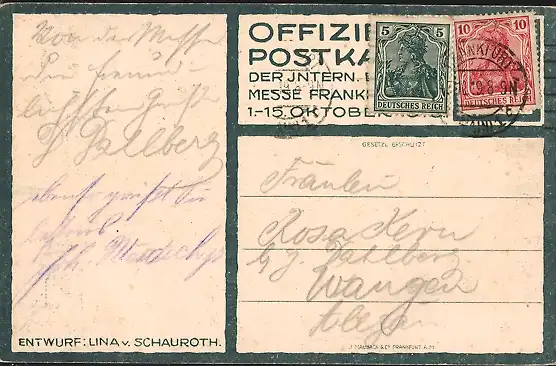 Von der Messe
die freund-
lichsten Grüße
Dallberg
ebenso grüßt Sie
ENTWURF: LINA v. SCHAUROTH.
OFFIZIE
POSTKA
DER JNTERN.
MESSE FRANKF
1.-15 OKTOBER
5 5
DEUTSCHES REICH
10 10
DEUTSCHES REICH
NKFURT
9.8-9N
GESETZL GESCHÜTZT
Fräulein
Rosa Kern
b/ J. Dallberg
Wangen
J. MAUBACH & Co FRANKFURT A. M.